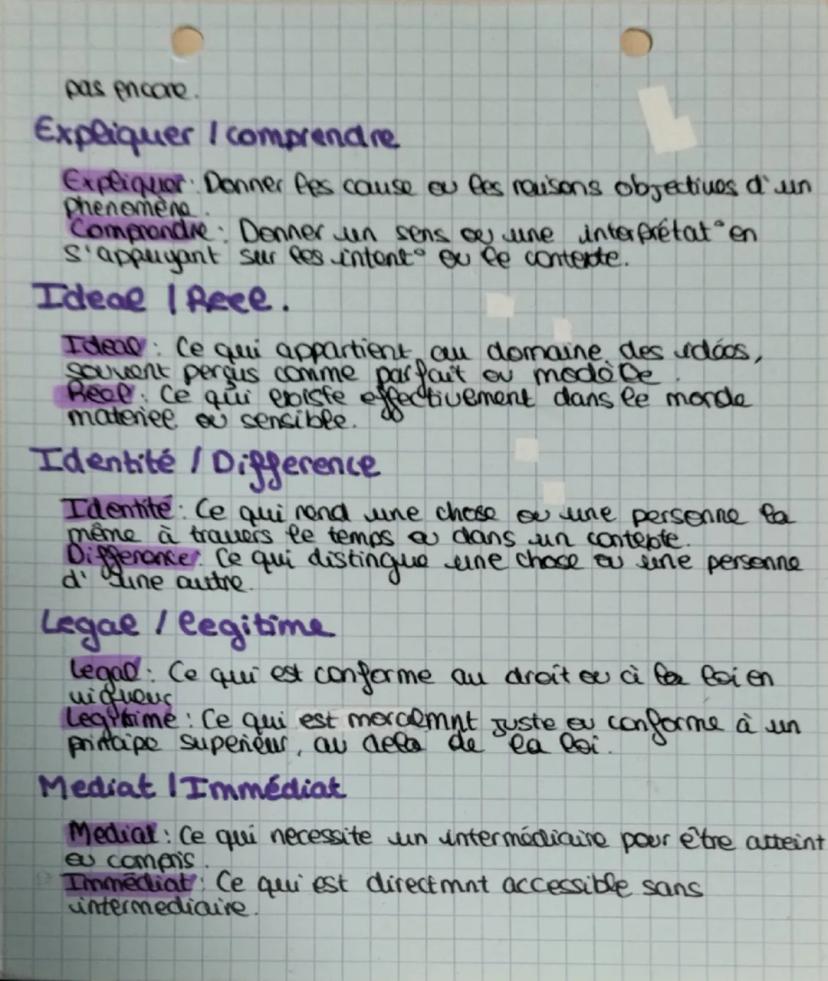 pas encore.
Expliquer / comprendre
Expliquer : Donner les cause ou les raisons objectives d'un
phenomène.
Comprendre : Donner un sens ou une interprétat° en
s'appuyant sur les intent° ou le contexte.
Ideal / Réel.
Ideal : Ce qui appartient au domaine des idées,
souvent perçus comme parfait ou modèle.
Réel : Ce qui existe effectivement dans le monde
materiel ou sensible.
Identité / Difference
Identité : Ce qui rend une chose ou une personne la
même à travers le temps ou dans un contexte.
Difference : Ce qui distingue une chose ou une personne
d'une autre.
Legal / legitime
Legal : Ce qui est conforme au droit ou à la loi en
vigueur
Legitime : Ce qui est moralemnt juste ou conforme à un
principe superieur, au dela de la loi.
Mediat / Immédiat
Mediat : Ce qui necessite un intermédiaire pour être atteint
ou compris.
Immédiat : Ce qui est directmnt accessible sans
intermediaire.